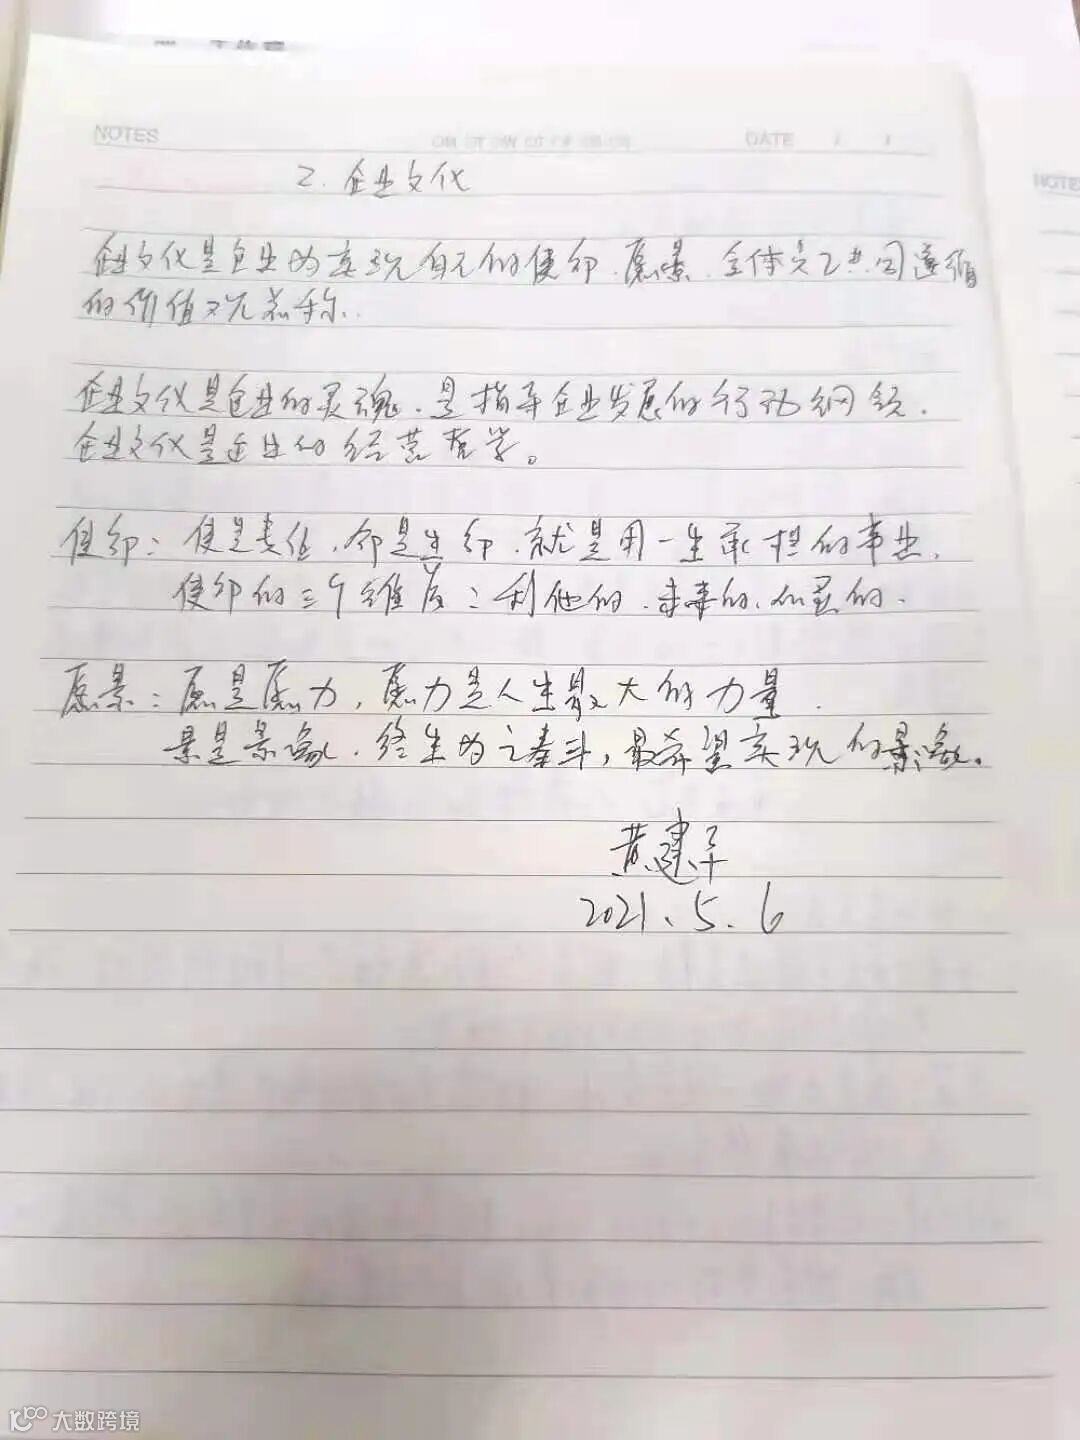 NOTES
DATE / /
NOTES
2. 企业文化
企业文化是企业为实现自己的使命、愿景、全体员工共同遵循
的价值观总称.
企业文化是企业的灵魂、是指导企业发展的行动纲领.
企业文化是企业的经营哲学。
使命：使是责任、命是生命、就是用一生承担的事业.
使命的三个维度：利他的、未来的、心灵的.
愿景：愿是愿力，愿力是人生最大的力量.
景是景象、终生为之奋斗，最希望实现的景象。
黄建
2021.5.6
大数跨境